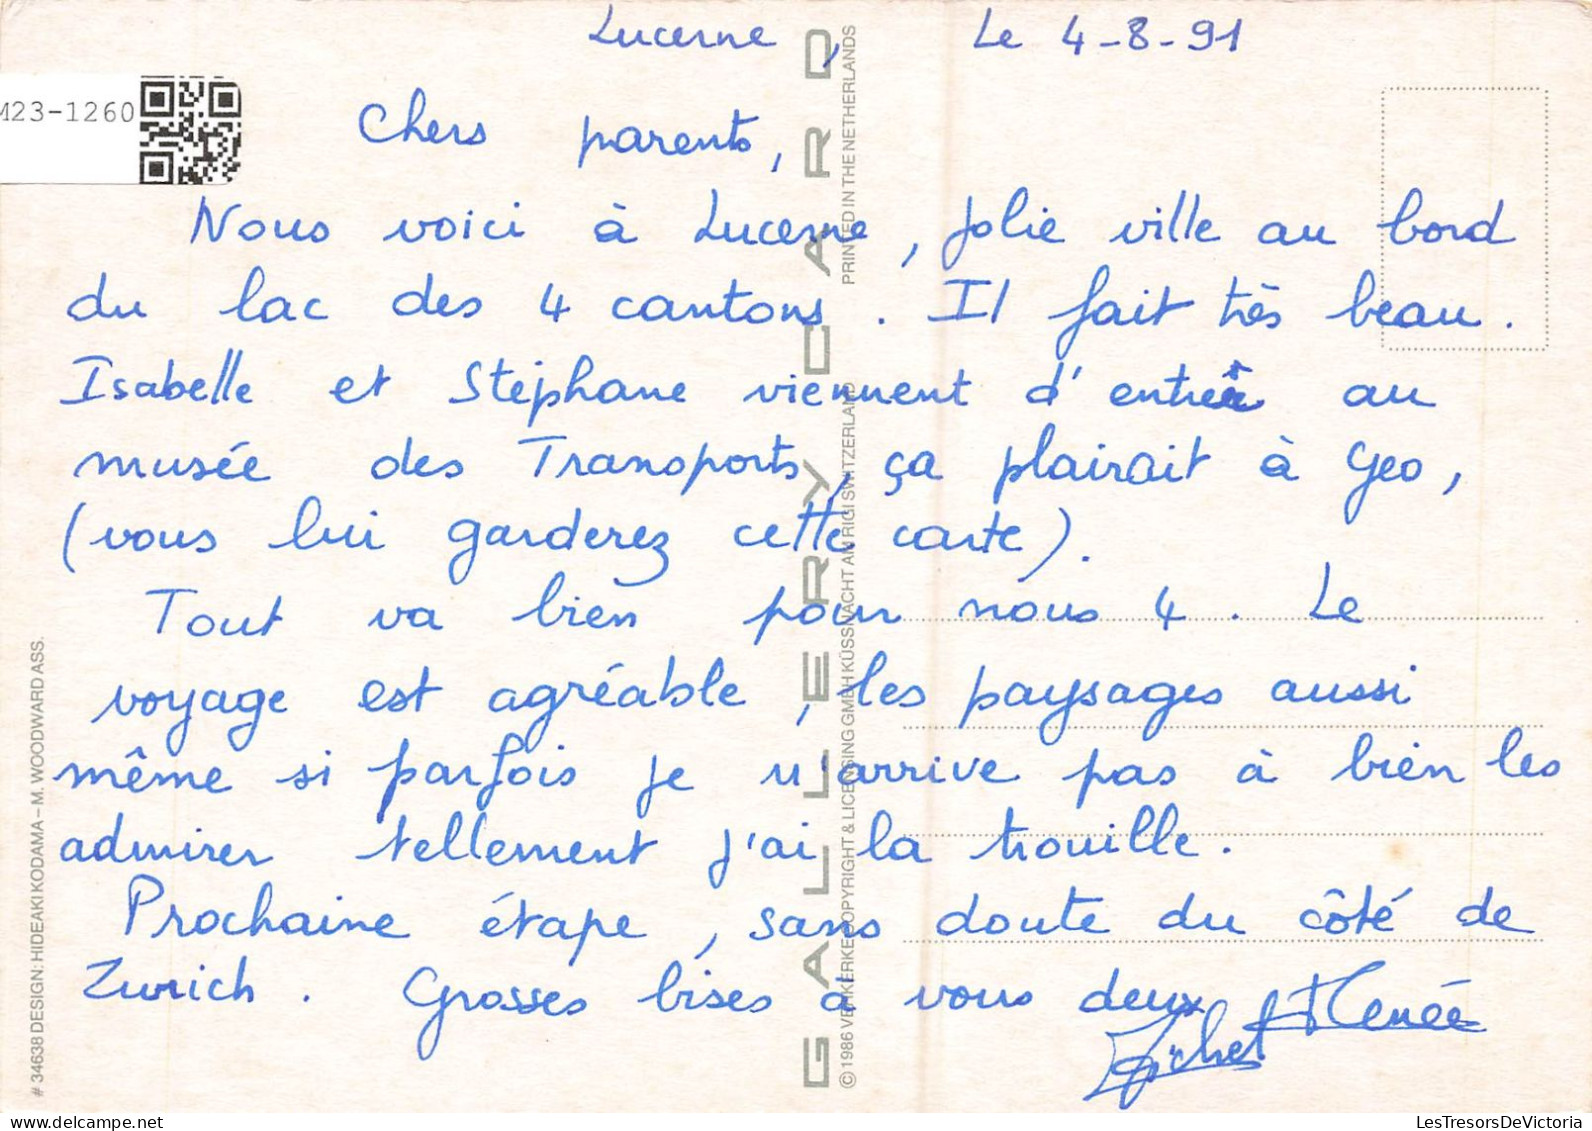 Lucerne, Le 4-8-91
M23-1260
Chers parents,
Nous voici à Lucerne, jolie ville au bord
du lac des 4 cantons. Il fait très beau.
Isabelle et Stéphane viennent d'entrer au
musée des Transports, ça plairait à Geo,
(vous lui garderez cette carte).
Tout va bien pour nous 4. Le
voyage est agréable, les paysages aussi
même si parfois je n'arrive pas à bien les
admirer tellement j'ai la trouille.
Prochaine étape, sans doute du côté de
Zurich. Grosses bises à vous deux
Michel Renée
# 34638 DESIGN: HIDEAKI KODAMA – M. WOODWARD ASS.
GALLERY CARD
© 1986 VERKERKE COPYRIGHT & LICENSING GMBH KÜSSNACHT AM RIGI SWITZERLAND PRINTED IN THE NETHERLANDS
LesTresorsDeVictoria